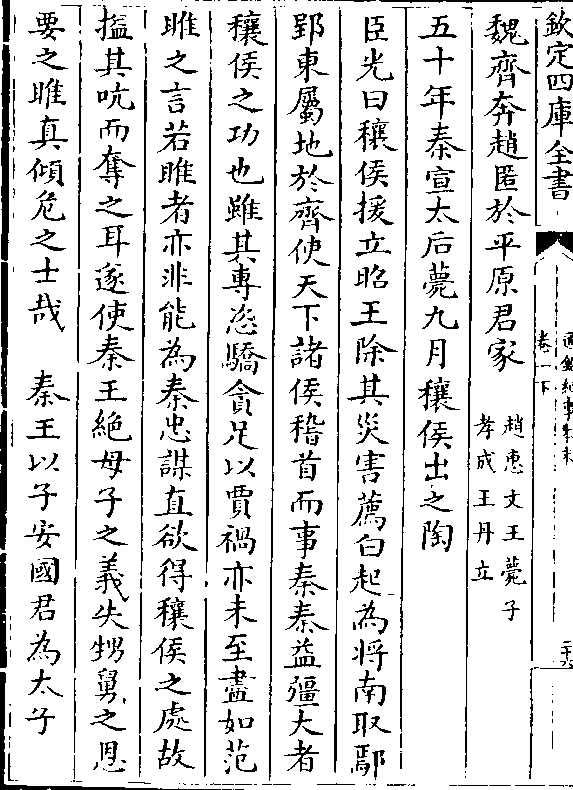 欽定四庫全書
通鑑紀事本末
卷一下
魏齊奔趙匿於平原君家
趙惠文王薨子
孝成王丹立
五十年秦宣太后薨九月穰侯出之陶
臣光曰穰侯援立昭王除其災害薦白起為將南取鄢
郢東屬地於齊使天下諸侯稽首而事秦秦益彊大者
穰侯之功也雖其專恣驕貪足以賈禍亦未至盡如范
雎之言若雎者亦非能為秦忠謀直欲得穰侯之處故
搤其吭而奪之耳遂使秦王絶母子之義失甥舅之恩
要之雎真傾危之士哉　秦王以子安國君為太子